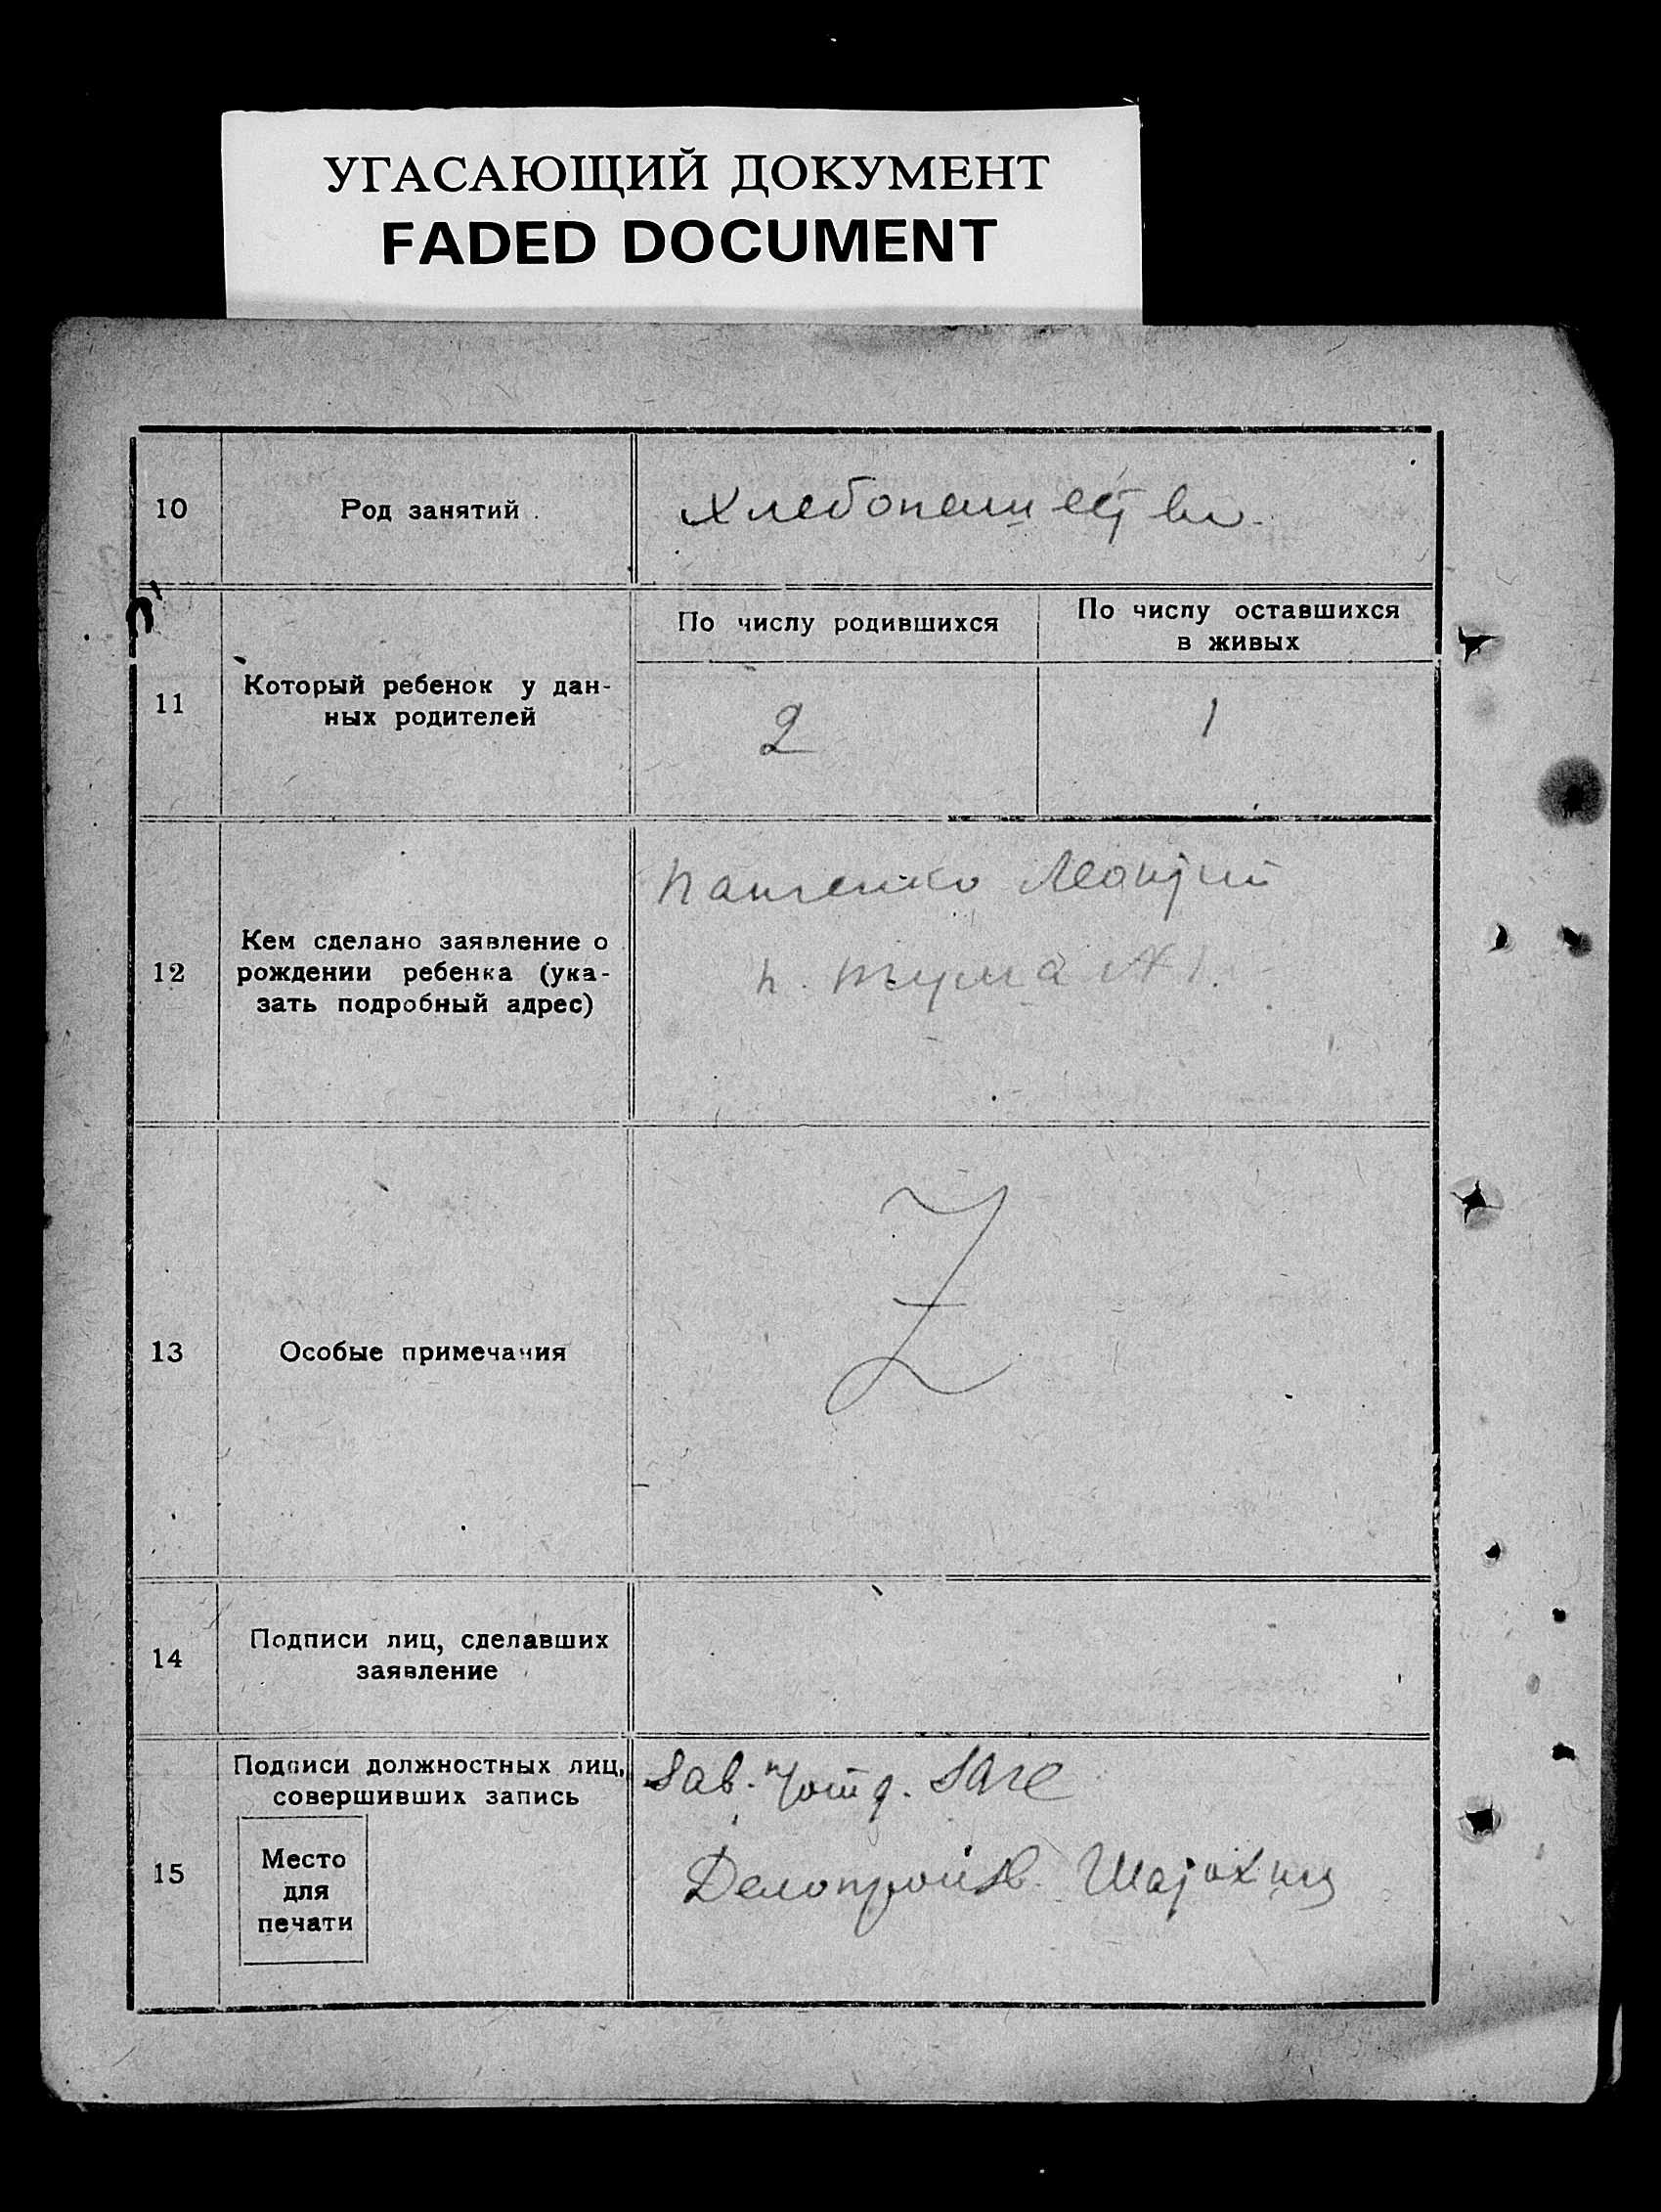 УГАСАЮЩИЙ ДОКУМЕНТ
FADED DOCUMENT
10
Род занятий
Хлебопашество
11
Который ребенок у дан-
ных родителей
По числу родившихся
По числу оставшихся
в живых
2
1
12
Кем сделано заявление о
рождении ребенка (ука-
зать подробный адрес)
Панченко Леонтий
п.
13
Особые примечания
Z
14
Подписи лиц, сделавших
заявление
15
Подписи должностных лиц,
совершивших запись
Место
для
печати
Зав. п/отд. Загс
Делопроизв.